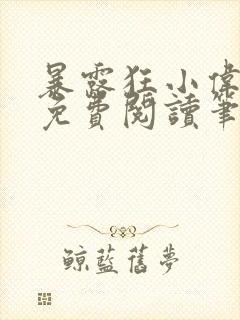 暴露狂小偉
免費閱讀筆
鯨藍舊夢